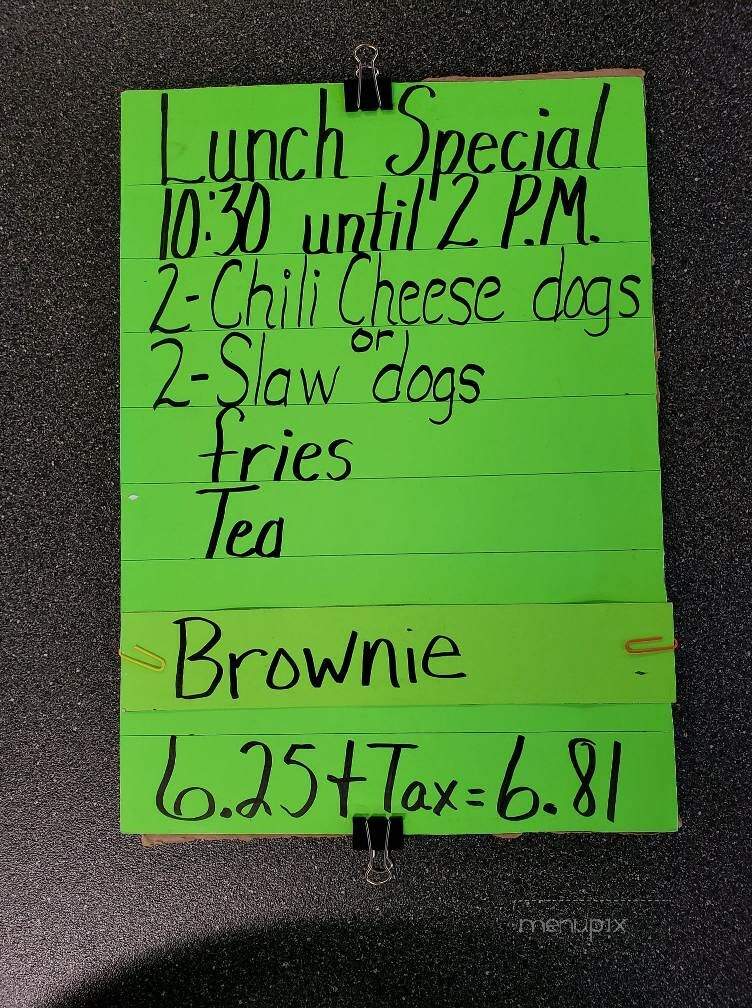 Lunch Special
10:30 until 2 P.M.
2-Chili Cheese dogs
or
2-Slaw dogs
fries
Tea
Brownie
6.25+Tax=6.81
menupix